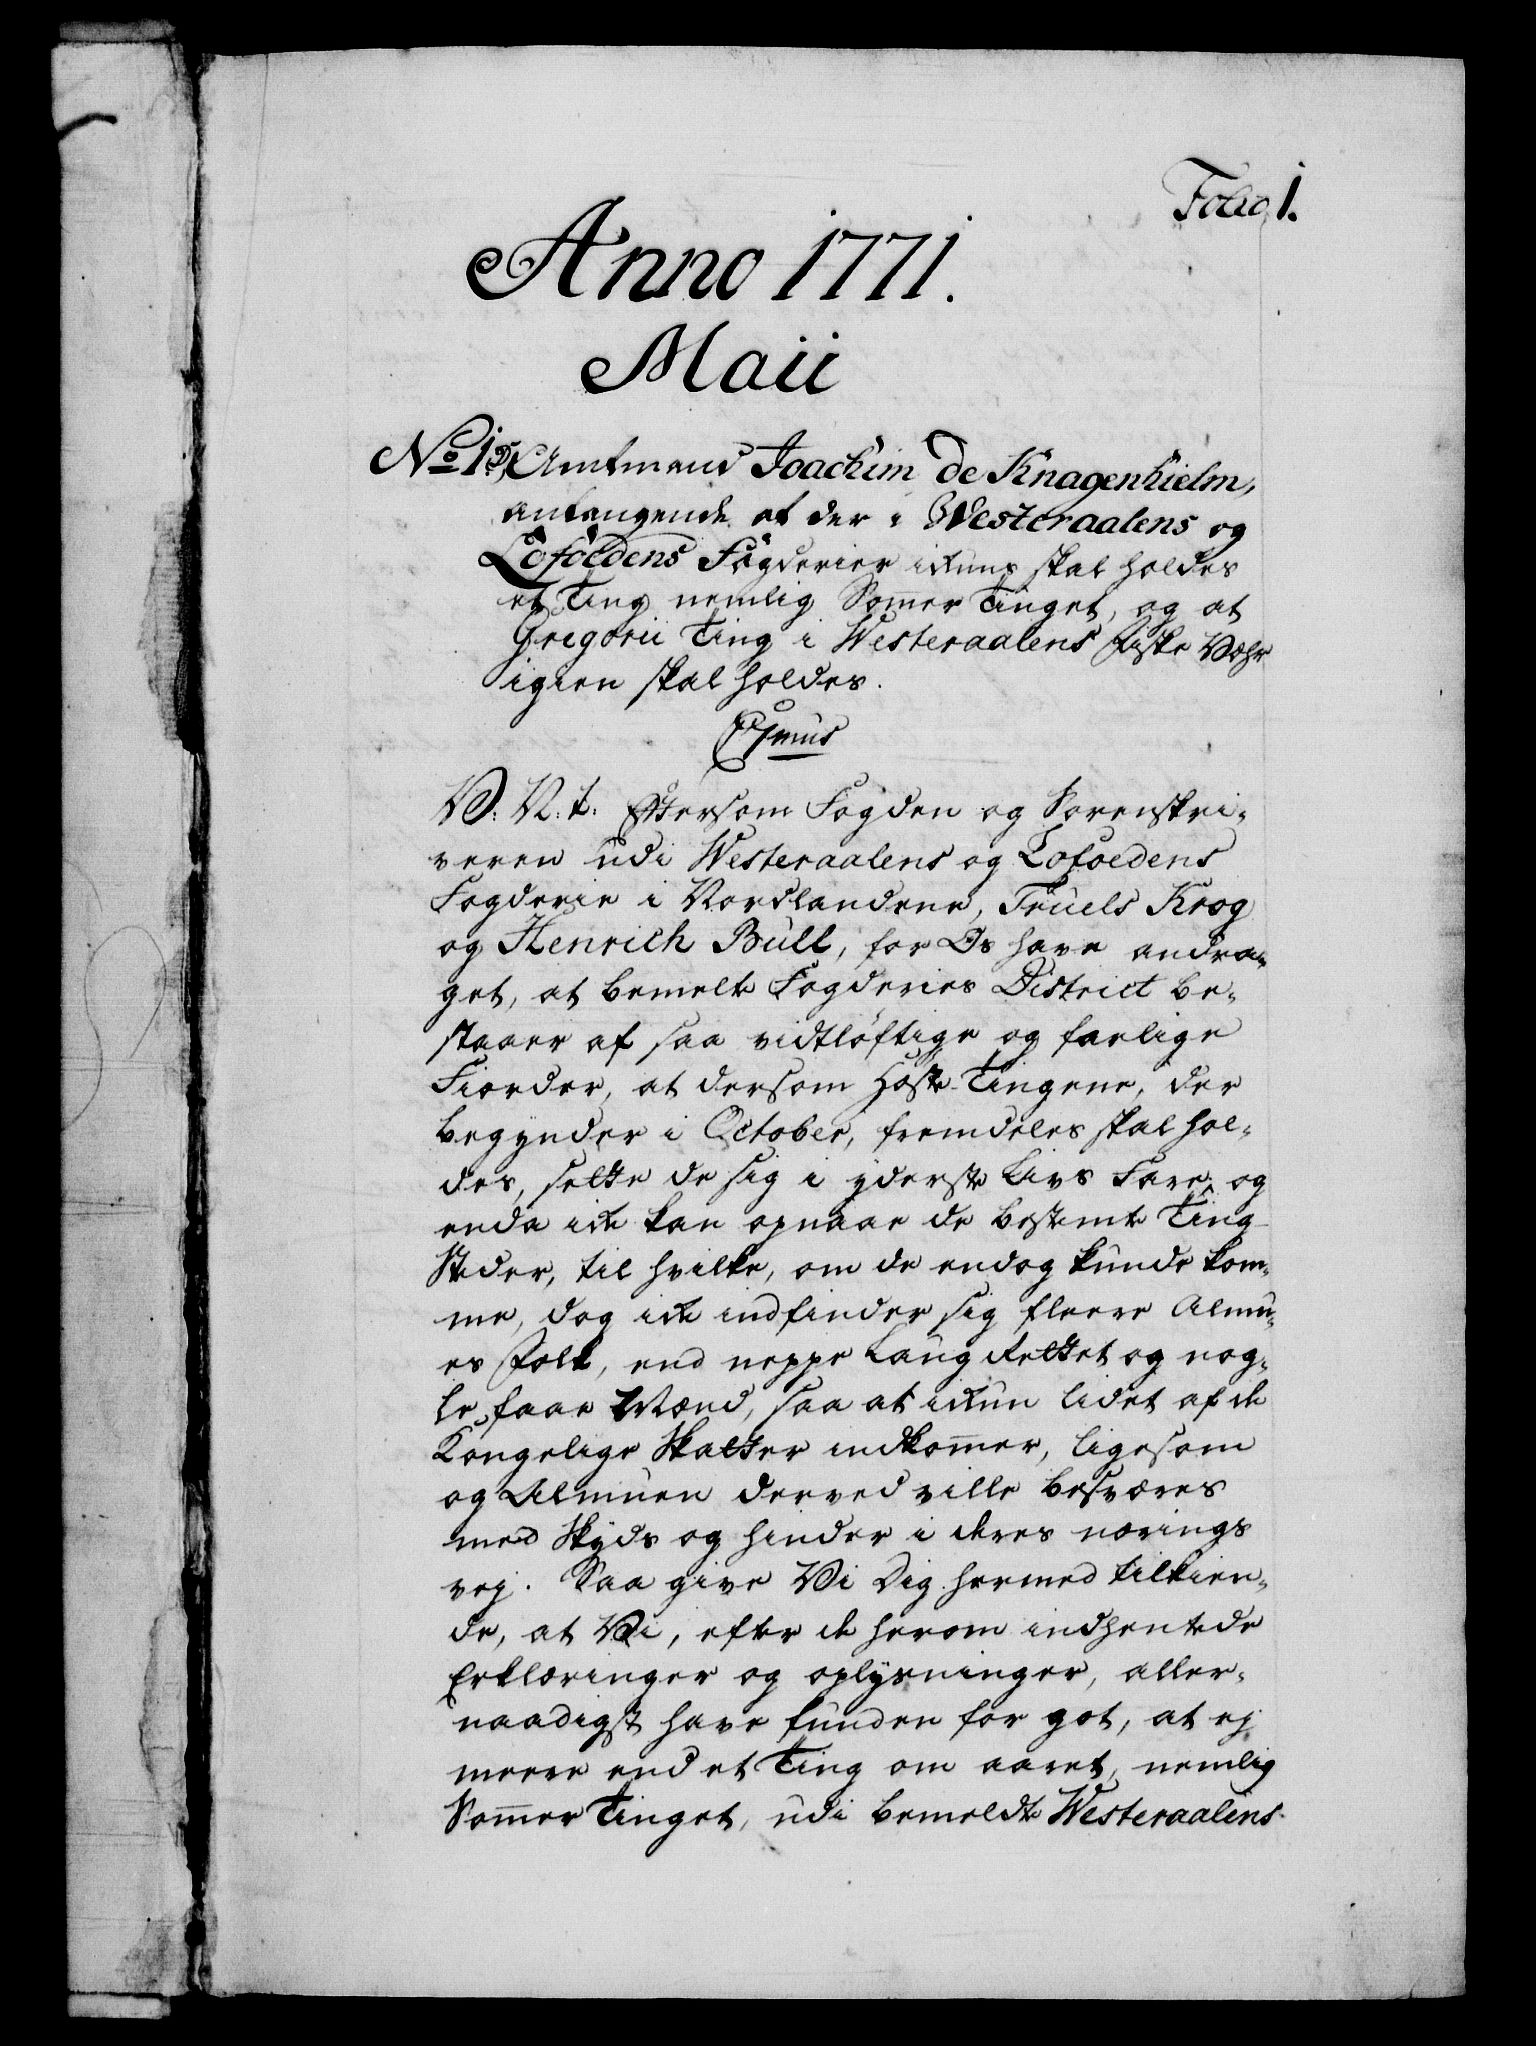 Folio 1.
Anno 1771.
Maii
No 1. Amtmand Joachim de Knagenhielm,
anlangende at der i Westeraalens og
Lofoedens Fogderier ickuns skal holdes
et Ting nemlig Somer Tinget, og at
Gregorii Ting i Westeraalens Fiske Væhr
igien skal holdes.
V. V. t. Eftersom Fogden og Sorenskri-
veren udi Westeraalens og Lofoedens
Fogderie i Nordlandene, Truels Krog
og Henrich Bull, for Os have andra-
get, at bemelte Fogderies District be-
staaer af saa vidtløftige og farlige
Fiorder, at dersom Høste-Tingene, der
begynder i October, fremdeles skal hol-
des, sette de sig i yderste Livs Fare, og
enda icke kan opnaae de bestemte Ting-
Steder, til hvilke, om de endog kunde kom-
me, dog icke indfinder sig fleere Almu-
es Folk, end neppe Laug Rettet og nog-
le faae Mænd, saa at ickun lidet af de
Kongelige Skatter indkomer, ligesom
og Almuen derved ville besværes
med Skyds og hinder i deres nærings
vej. Saa give Vi Dig hermed tilkien-
de, at Vi, efter de herom indhentede
Erklæringer og oplysninger, aller-
naadigst have funden for got, at ej
meere end et Ting om aaret, nemlig
Somer Tinget, udi bemeldte Westeraalens